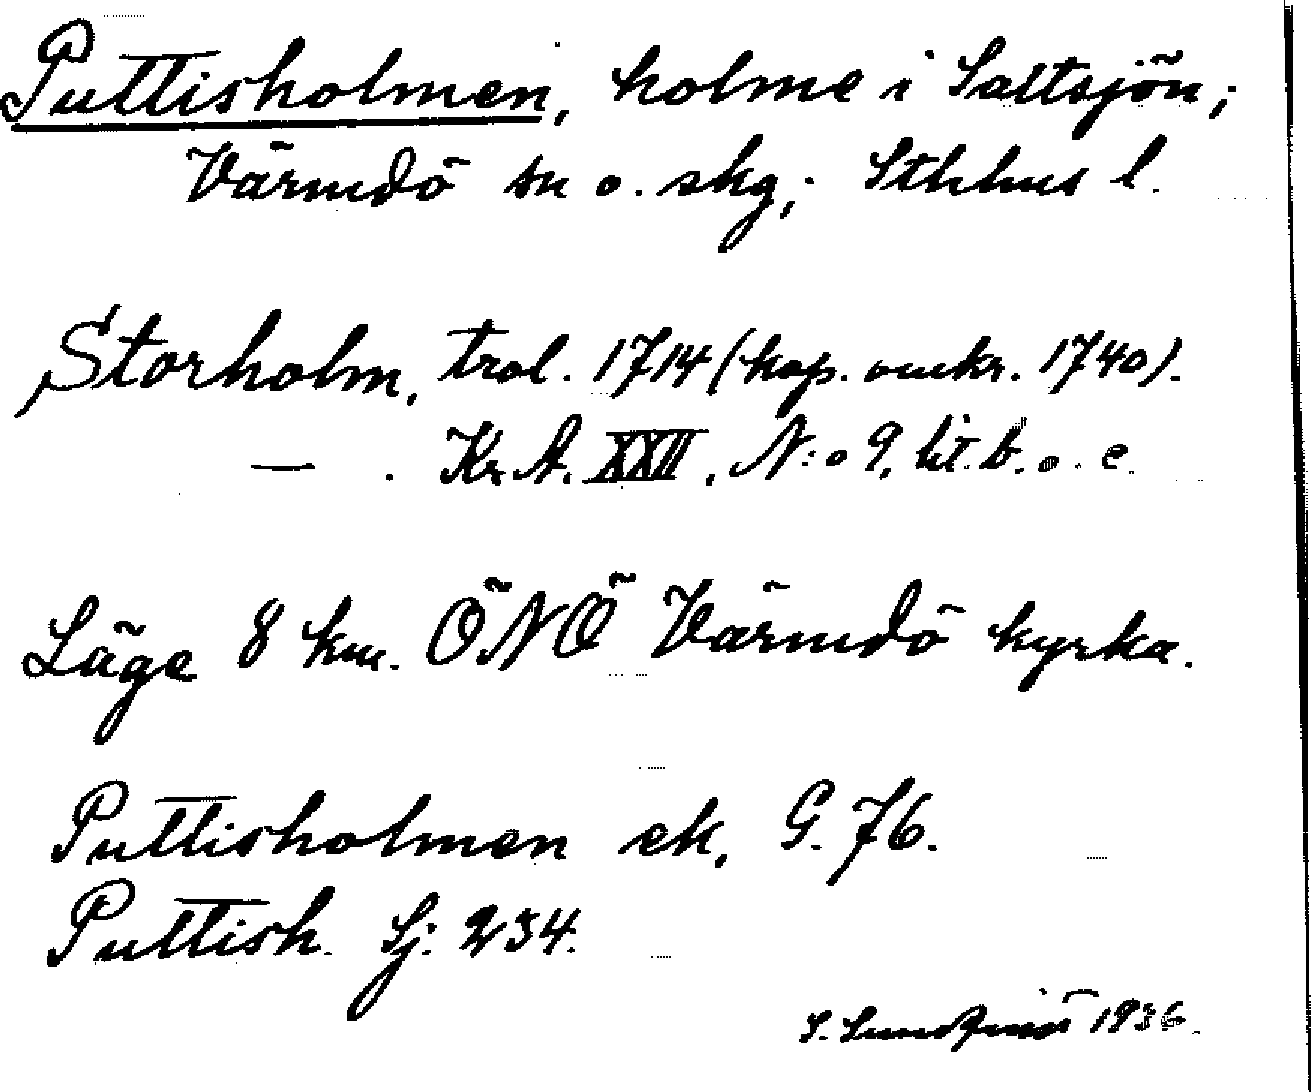 Puttisholmen, holme i Saltsjön;
Värmdö sn o. skg; Sthlms l.
Storholm, trol. 1714 (kop. omkr. 1740).
— . Kr. A. XXII, N:o 9, lit. b. o. c.
Läge 8 km. ÖNÖ Värmdö kyrka.
Puttisholmen ek. G. 76.
Puttish. Sj. 234.
S. Lundqvist 1936.